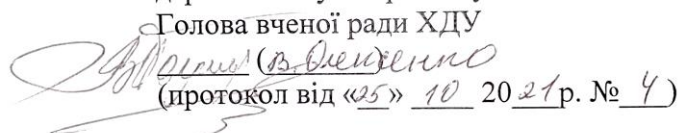 Голова вченої ради ХДУ
(В. Олексенко)
(протокол від «25» 10 2021 р. № 4)